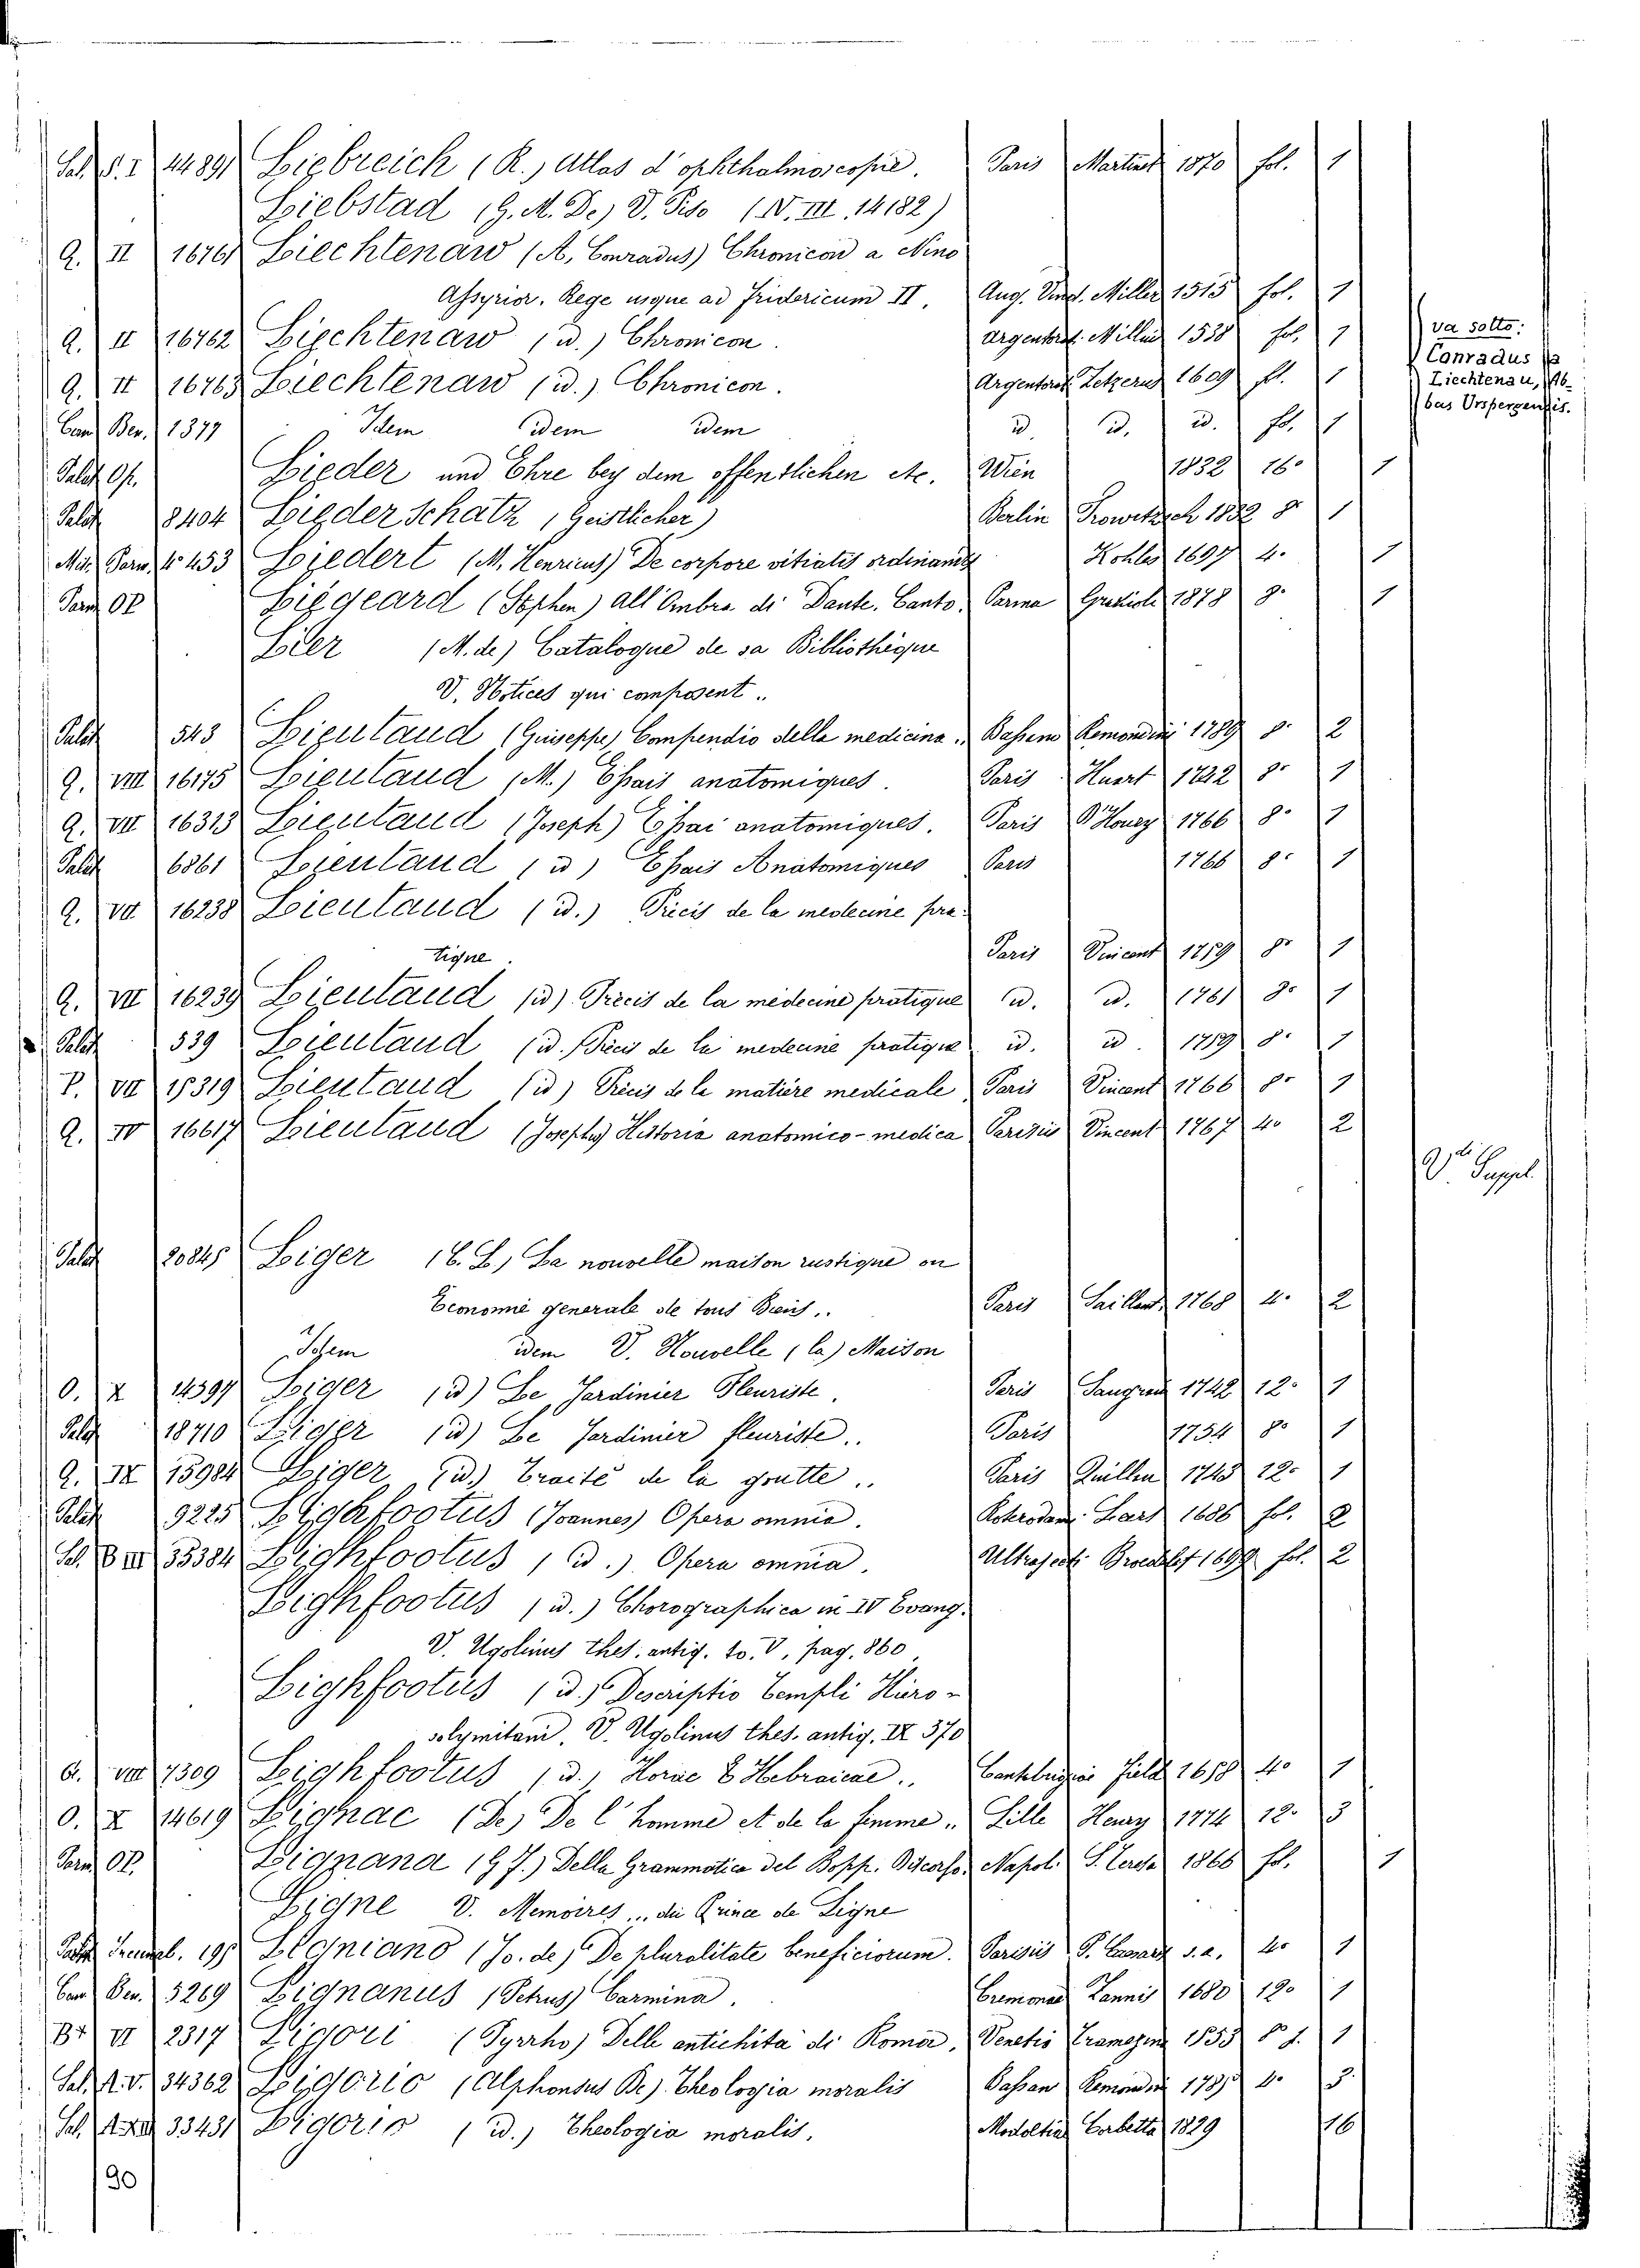 Sal. S. I 44891 Liebreich (R.) Atlas d'ophthalmoscopie. Paris Martinet 1870 fol. 1
Liebstad (G. M. De) V. Piso (N. III. 14182)
Q. II 16761 Liechtenaw (A. Conradus) Chronicon a Nino
Assyrior. Rege usque ad Fridericum II. Aug. Vind. Miller 1515 fol. 1
Q. II 16762 Liechtenaw (id.) Chronicon. Argentorat. 1538 fol. 1
Q. II 16763 Liechtenaw (id.) Chronicon. Argentorat. Zetzerus 1609 fol. 1
Cam Ber. 1377 Idem idem idem id. id. id. fol. 1
Palat Op. Lieder und Ehre bey dem offentlichen etc. Wien 1832 16° 1
Palat 8404 Lieder Schatz (Geistlicher) Berlin Trowitzsch 1832 8° 1
Mis. Parm. 4° 453 Liedert (M. Henricus) De corpore vitiatis ordinandis Kohles 1697 4. 1
Parm OP Liegeard (Stephen) All'Ombra di Dante. Canto. Parma Grazioli 1878 8. 1
Lier (M. de) Catalogue de sa Bibliothèque
V. Notices qui composent..
Palat 543 Lieutaud (Giuseppe) Compendio della medicina.. Bassano Remondini 1789 8. 2
Q. VIII 16175 Lieutaud (M.) Essais anatomiques. Paris Huart 1742 8° 1
Q. VII 16313 Lieutaud (Joseph) Essai anatomiques. Paris D'Houry 1766 8. 1
Palat 6861 Lieutaud (id) Essais Anatomiques Paris 1766 8. 1
Q. VII 16238 Lieutaud (id.) Précis de la medecine pra-
tique. Paris Vincent 1759 8° 1
Q. VII 16239 Lieutaud (id) Précis de la médecine pratique id. id. 1761 8° 1
Palat 539 Lieutaud (id. Précis de la medecine pratique id. id. 1759 8. 1
P. VII 15319 Lieutaud (id) Précis de la matière medicale Paris Vincent 1766 8° 1
Q. IV 16617 Lieutaud (Josephus) Historia anatomico-medica Parisiis Vincent 1767 4° 2
Palat 20845 Liger (C. L.) La nouvelle maison rustique ou
Economie generale de tous Biens.. Paris Saillant 1768 4. 2
Idem idem V. Nouvelle (la) Maison
O. X 14397 Liger (id) Le Jardinier Fleuriste. Paris Saugrain 1742 12. 1
Palat 18710 Liger (id) Le Jardinier fleuriste.. Paris 1754 8° 1
Q. IX 15984 Liger (id.) Traité de la goutte.. Paris Quillen 1743 12. 1
Palat 9225 Lighfootus (Joannes) Opera omnia. Roterodam. Leers 1686 fol. 2
Sal. B III 35384 Lighfootus (id.) Opera omnia. Ultrajecti Broedelet 1699 fol. 2
Lighfootus (id.) Chorographica in IV Evang.
V. Ugolinus thes. antiq. to. V, pag. 860
Lighfootus (id.) Descriptio templi Hiero-
solymitani. V. Ugolinus thes. antiq. IX 370
G. VIII 7309 Lighfootus (id.) Horae & Hebraicae.. Field 1658 4° 1
O. X 14619 Lignac (De) De l'homme et de la femme.. Lille Henry 1774 12. 3
Parm OP. Lignana (G. J.) Della Grammatica del Bopp. Discorso. Napoli S. Teresa 1866 fol. 1
Ligne V. Memoires... du Prince de Ligne
195 Ligniano (Jo. de) De pluralitate beneficiorum. Parisiis s.a. 4° 1
Cam Ber. 5269 Lignanus (Petrus) Carmina. Cremonae Zannis 1680 12° 1
B+ VI 2317 Ligori (Pyrrho) Delle antichità di Roma. Venetia Tramezino 1553 8° f. 1
Sal. A. V. 34362 Ligorio (Alphonsus De) Theologia moralis Bassan Remondini 1785 4. 3.
Sal. 33431 Ligorio (id.) Theologia moralis. Modoetia Corbetta 1829 16
90
va sotto:
Conradus a
Liechtenau, Ab-
bas Urspergensis.
V. Suppl.